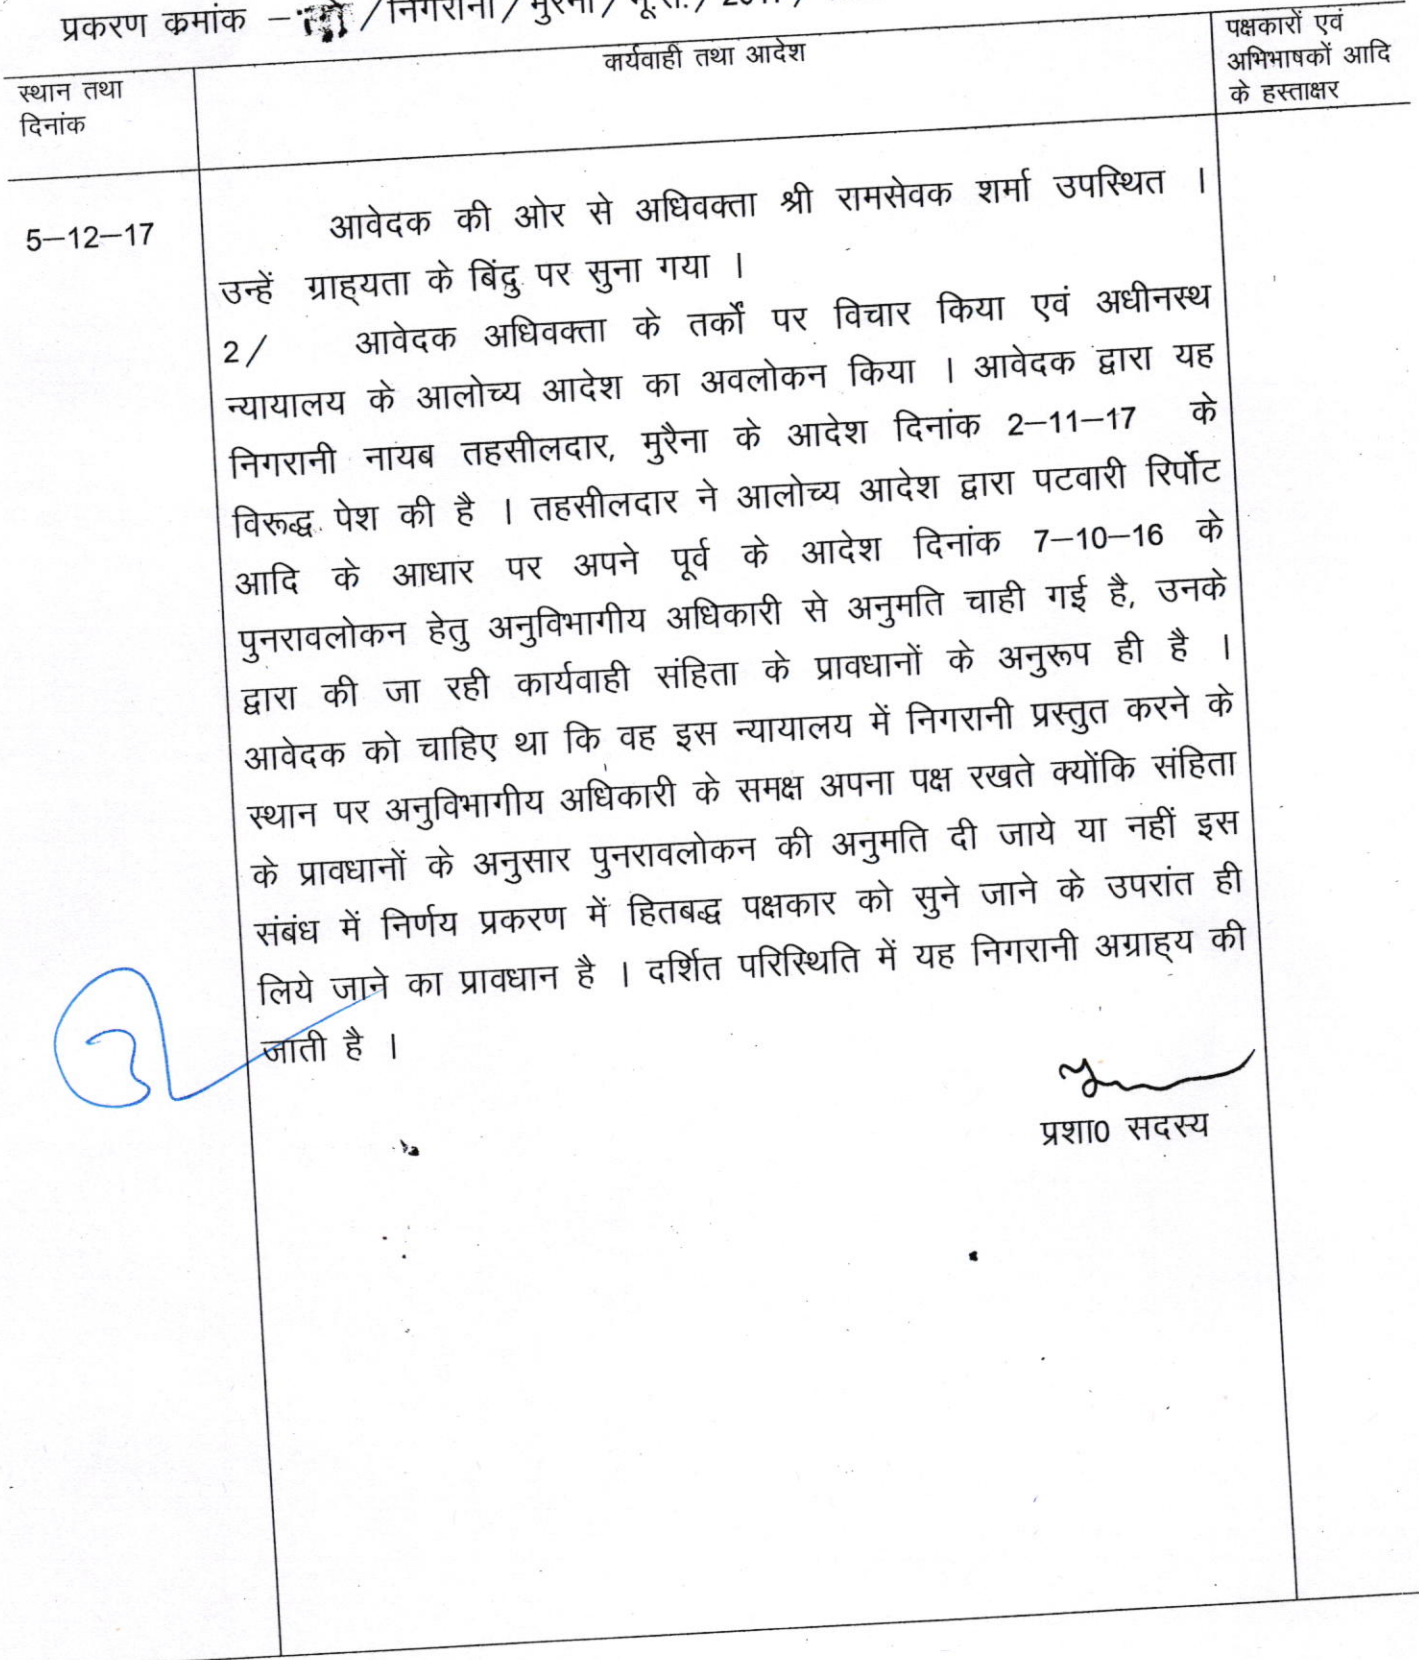 प्रकरण क्रमांक – / निगरानी / मुरैना / भू.रा. / 2017 /
स्थान तथा दिनांक
कार्यवाही तथा आदेश
पक्षकारों एवं अभिभाषकों आदि के हस्ताक्षर
5–12–17
आवेदक की ओर से अधिवक्ता श्री रामसेवक शर्मा उपस्थित ।
उन्हें ग्राह्यता के बिंदु पर सुना गया ।
2/ आवेदक अधिवक्ता के तर्कों पर विचार किया एवं अधीनस्थ
न्यायालय के आलोच्य आदेश का अवलोकन किया । आवेदक द्वारा यह
निगरानी नायब तहसीलदार, मुरैना के आदेश दिनांक 2–11–17 के
विरूद्ध पेश की है । तहसीलदार ने आलोच्य आदेश द्वारा पटवारी रिर्पोट
आदि के आधार पर अपने पूर्व के आदेश दिनांक 7–10–16 के
पुनरावलोकन हेतु अनुविभागीय अधिकारी से अनुमति चाही गई है, उनके
द्वारा की जा रही कार्यवाही संहिता के प्रावधानों के अनुरूप ही है ।
आवेदक को चाहिए था कि वह इस न्यायालय में निगरानी प्रस्तुत करने के
स्थान पर अनुविभागीय अधिकारी के समक्ष अपना पक्ष रखते क्योंकि संहिता
के प्रावधानों के अनुसार पुनरावलोकन की अनुमति दी जाये या नहीं इस
संबंध में निर्णय प्रकरण में हितबद्ध पक्षकार को सुने जाने के उपरांत ही
लिये जाने का प्रावधान है । दर्शित परिस्थिति में यह निगरानी अग्राह्य की
जाती है ।
प्रशा0 सदस्य